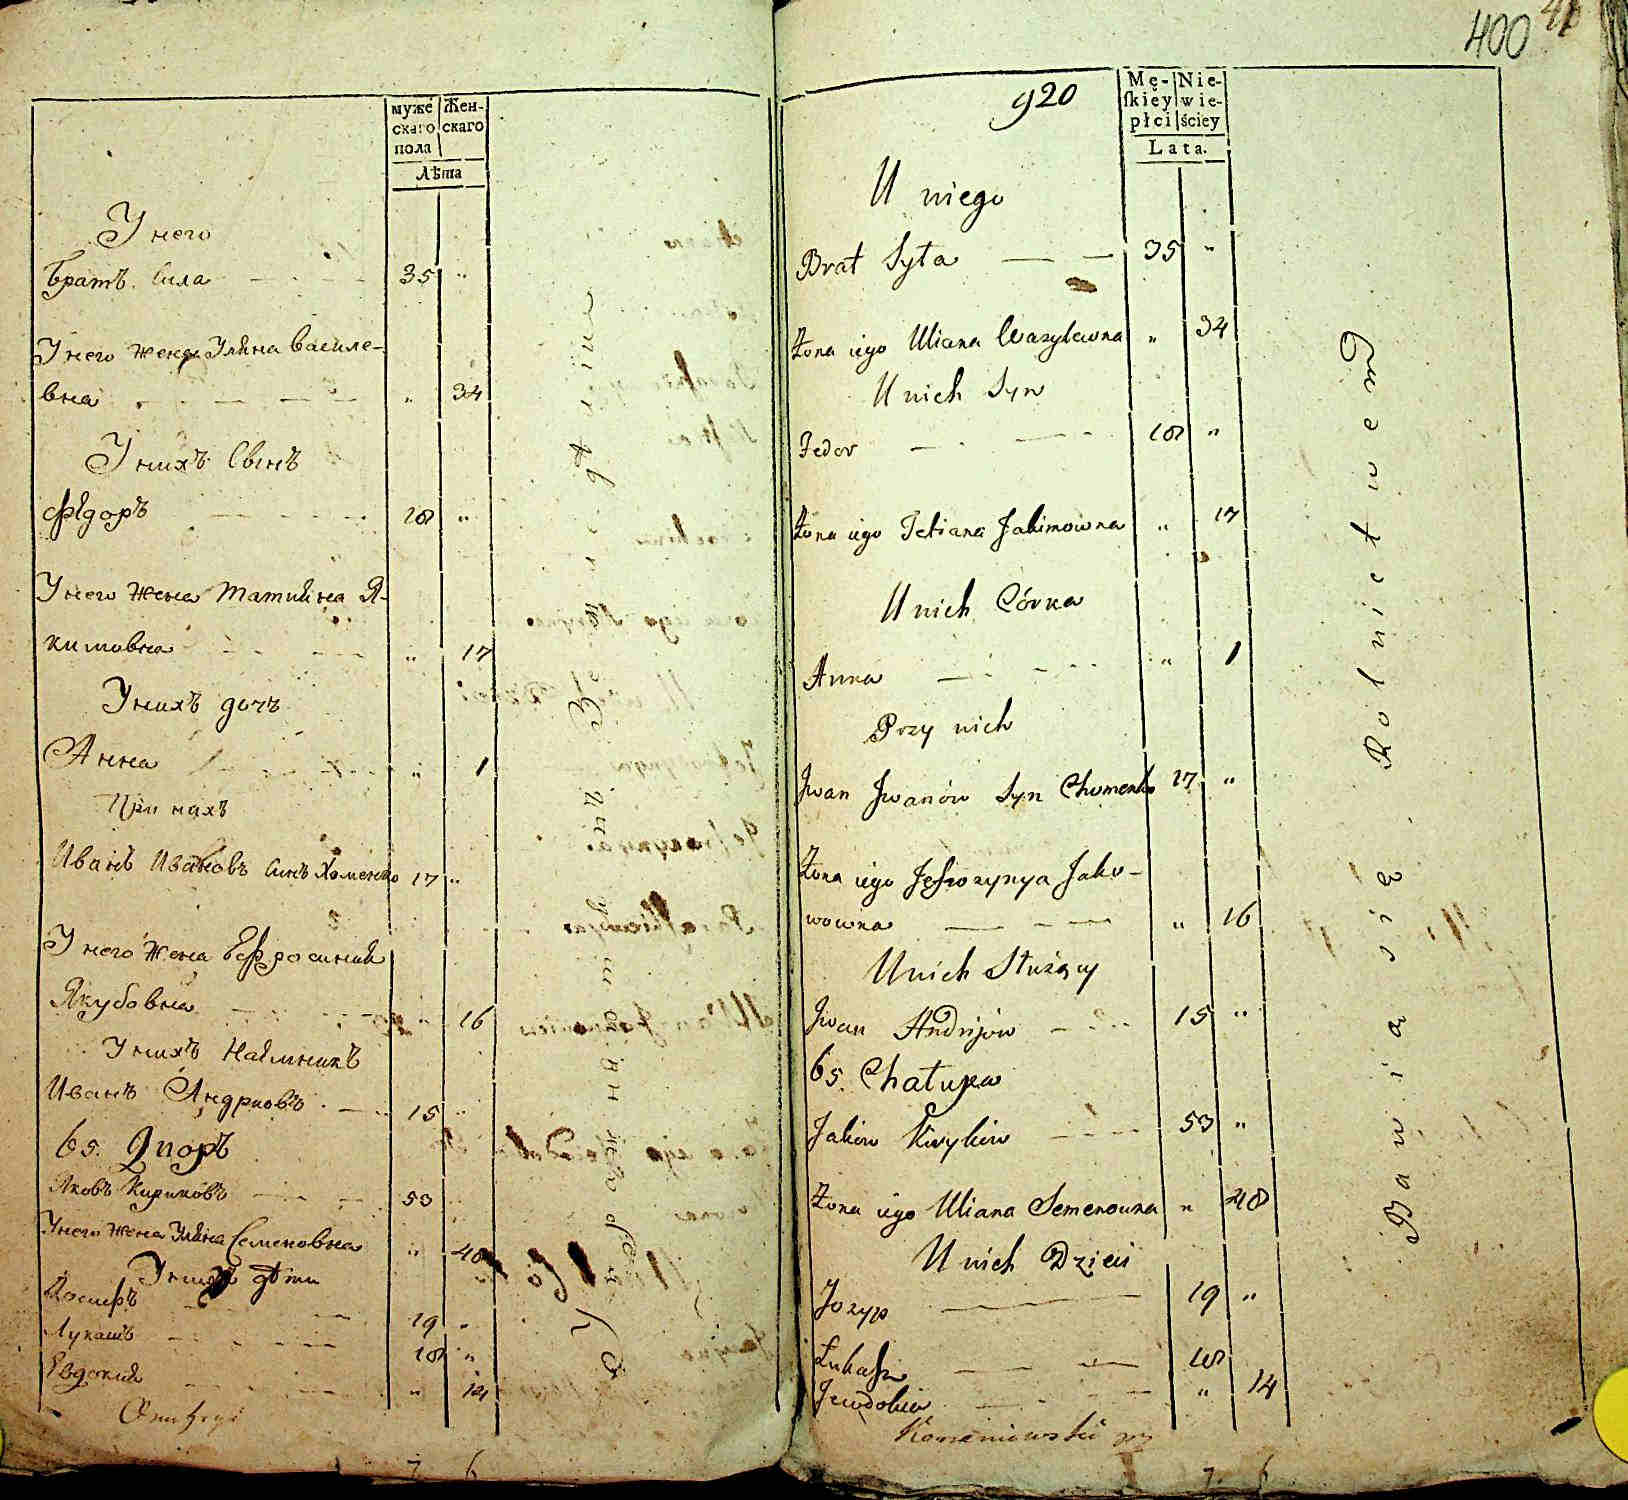 муже
скаго
пола
Жен-
скаго
Лѣта
У него
Братъ Сила 35 "
У него жена Уляна Василе-
вна " 34
У нихъ Сынъ
Фядоръ 18 "
У него жена Татияна Я-
кимовна " 17
У нихъ дочь
Анна " 1
При нихъ
Иванъ Ивановъ Синъ Хоменко 17 "
У него жена Ефросиния
Якубовна " 16
У нихъ Наймникъ
Иванъ Андриовъ 15 "
65. Дворъ
Яковъ Кириковъ 53
У него жена Уляна Семеновна " 48
У нихъ дѣти
Йосипъ 19 "
Лукашъ 18 "
Евдокия " 14
7 6
400
920
Mę-
skiey
płci
Nie-
wie-
ściey
Lata.
U niego
Brat Syła 35 "
Żona iego Uliana Wasylewna " 34
U nich Syn
Fedor 18 "
Żona iego Tetiana Jakimowna " 17
U nich Córka
Anna " 1
Przy nich
Jwan Jwanów Syn Chomenko 17 "
Żona iego Jefrozynya Jako-
wowna " 16
U nich Służący
Jwan Andrijow 15 "
65. Chałupa
Jakow Kirykow 53 "
Żona iego Uliana Semenowna " 48
U nich Dzieci
Jozyp 19 "
Łukasz 18
Jewdokia " 14
Bawią się Rolnictwem
7 6